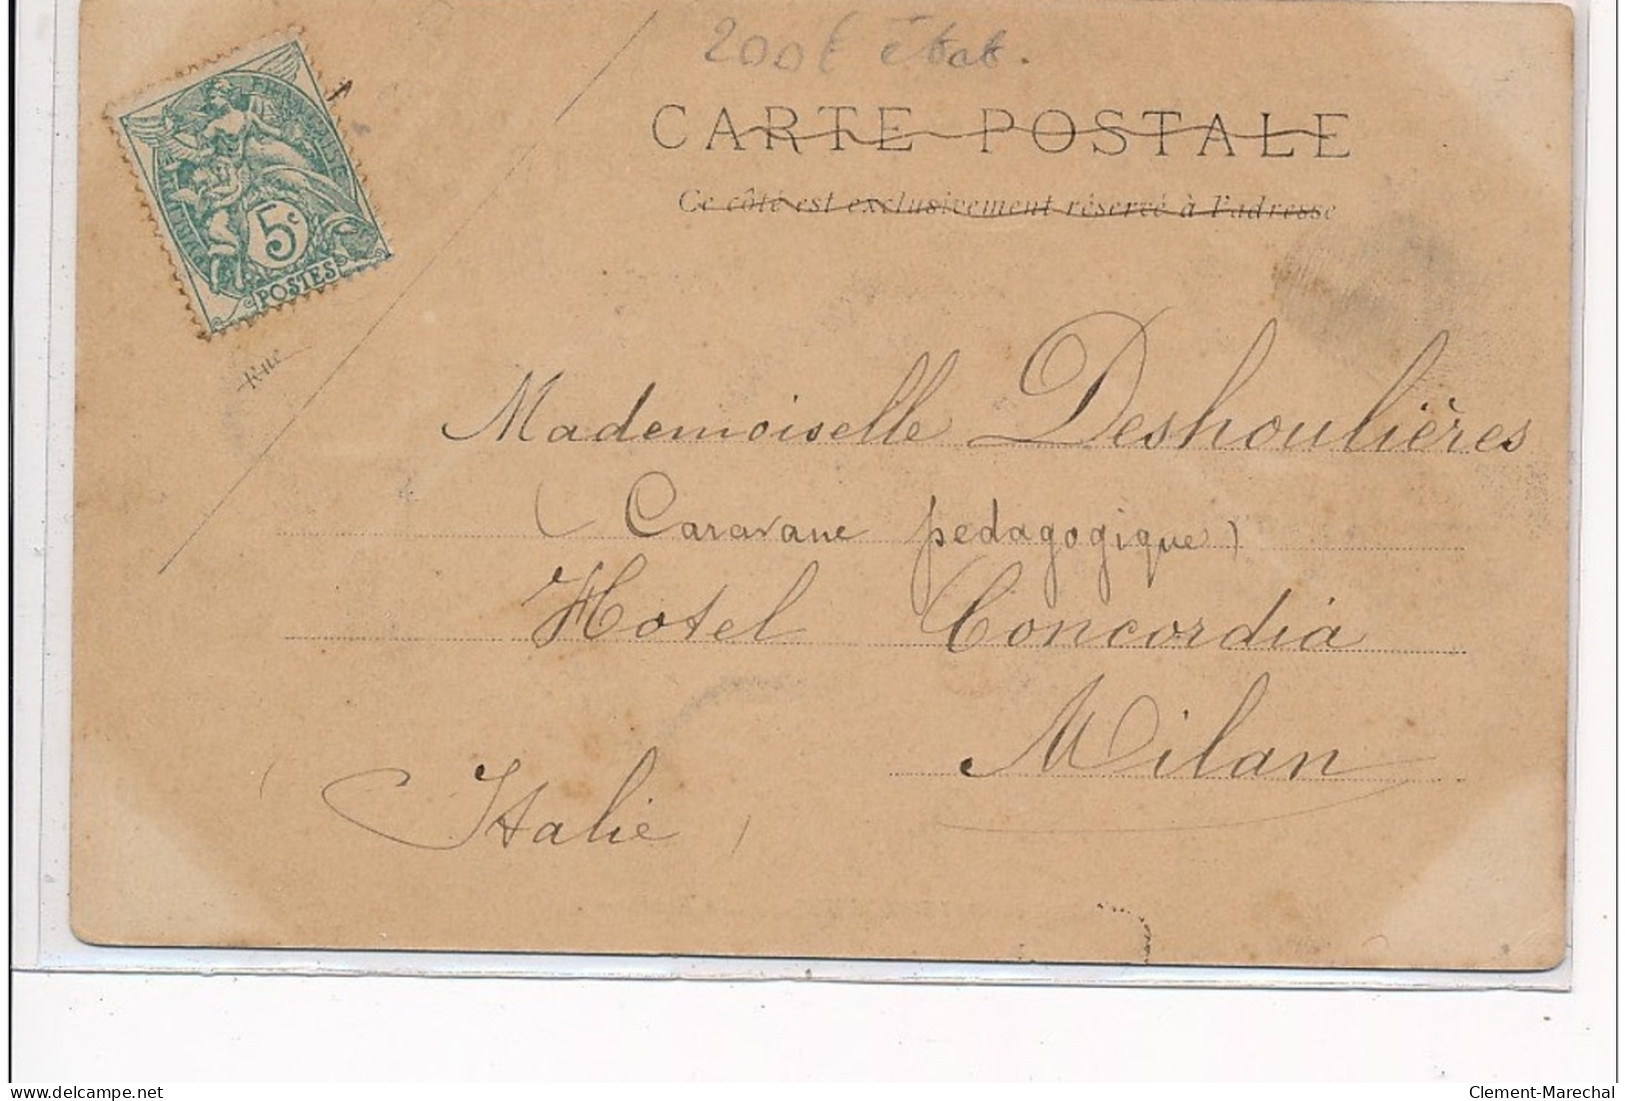 200€ état.
CARTE POSTALE
Ce côté est exclusivement réservé à l'adresse
5c
POSTES
Rue
Mademoiselle Deshoulières
(Caravane pedagogique)
Hotel Concordia
Milan
(Italie)
delcampe.net
Clement-Marechal